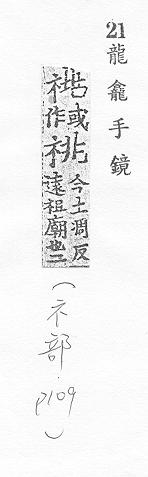 21 龍龕手鏡
或作祧今土凋反遠祖廟也二
(礻部.p109)